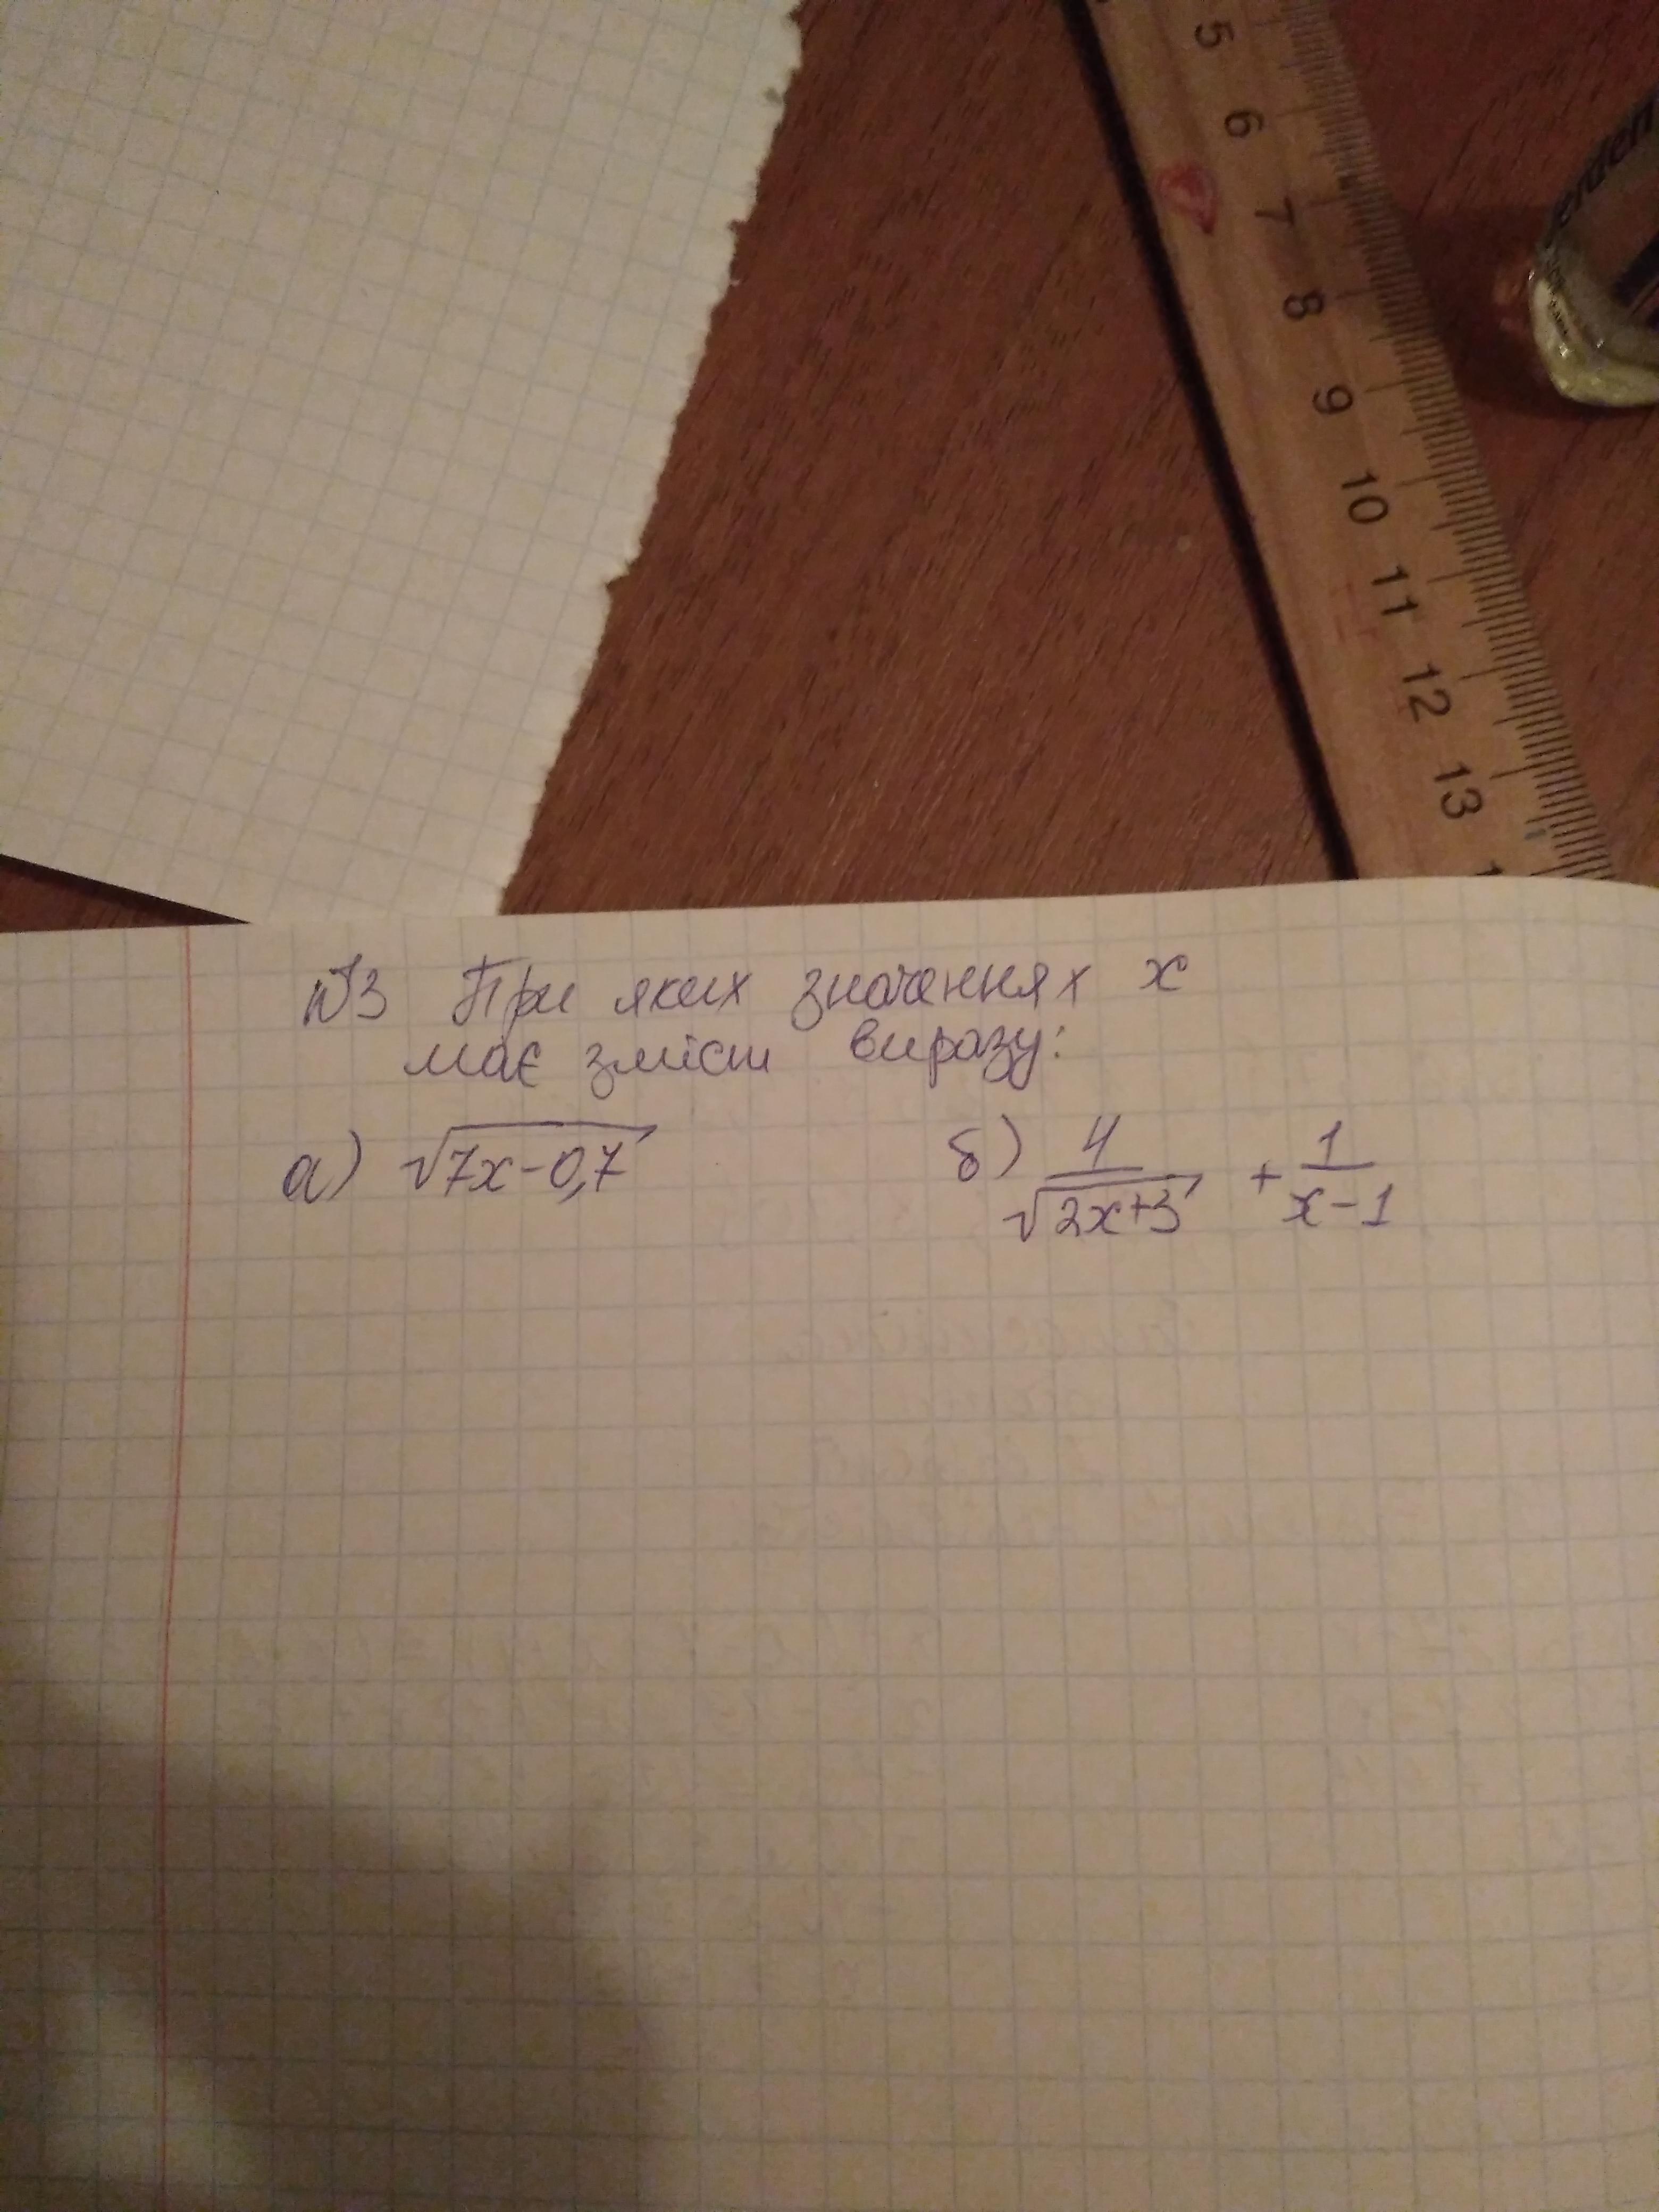 5
6
7
8
9
10
11
12
13
erden
№3 При яких значеннях x
має зміст виразу:
а) √7x-0,7 б) 4/√2x+3 + 1/x-1